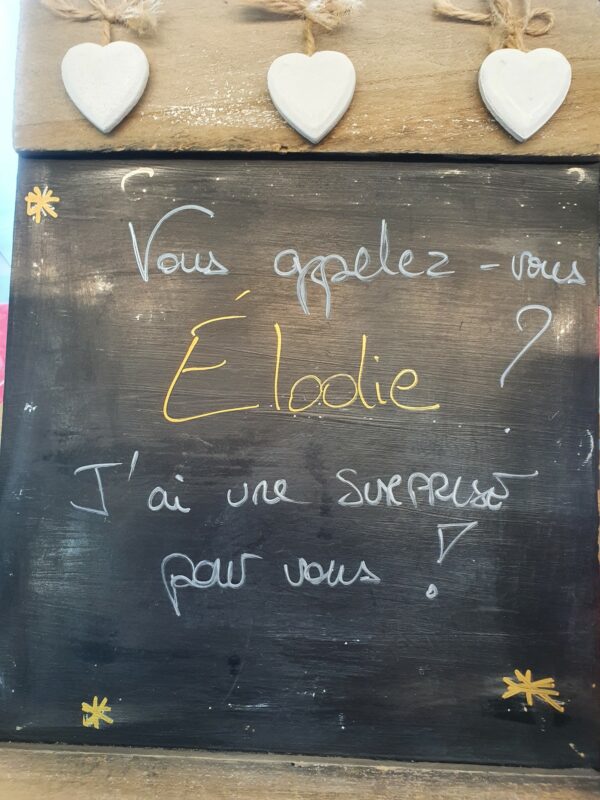 Vous appelez-vous
Élodie ?
J'ai une SURPRISE
pour vous !